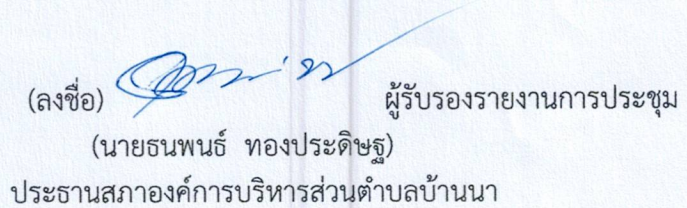 (ลงชื่อ) ผู้รับรองรายงานการประชุม
(นายธนพนธ์ ทองประดิษฐ)
ประธานสภาองค์การบริหารส่วนตำบลบ้านนา